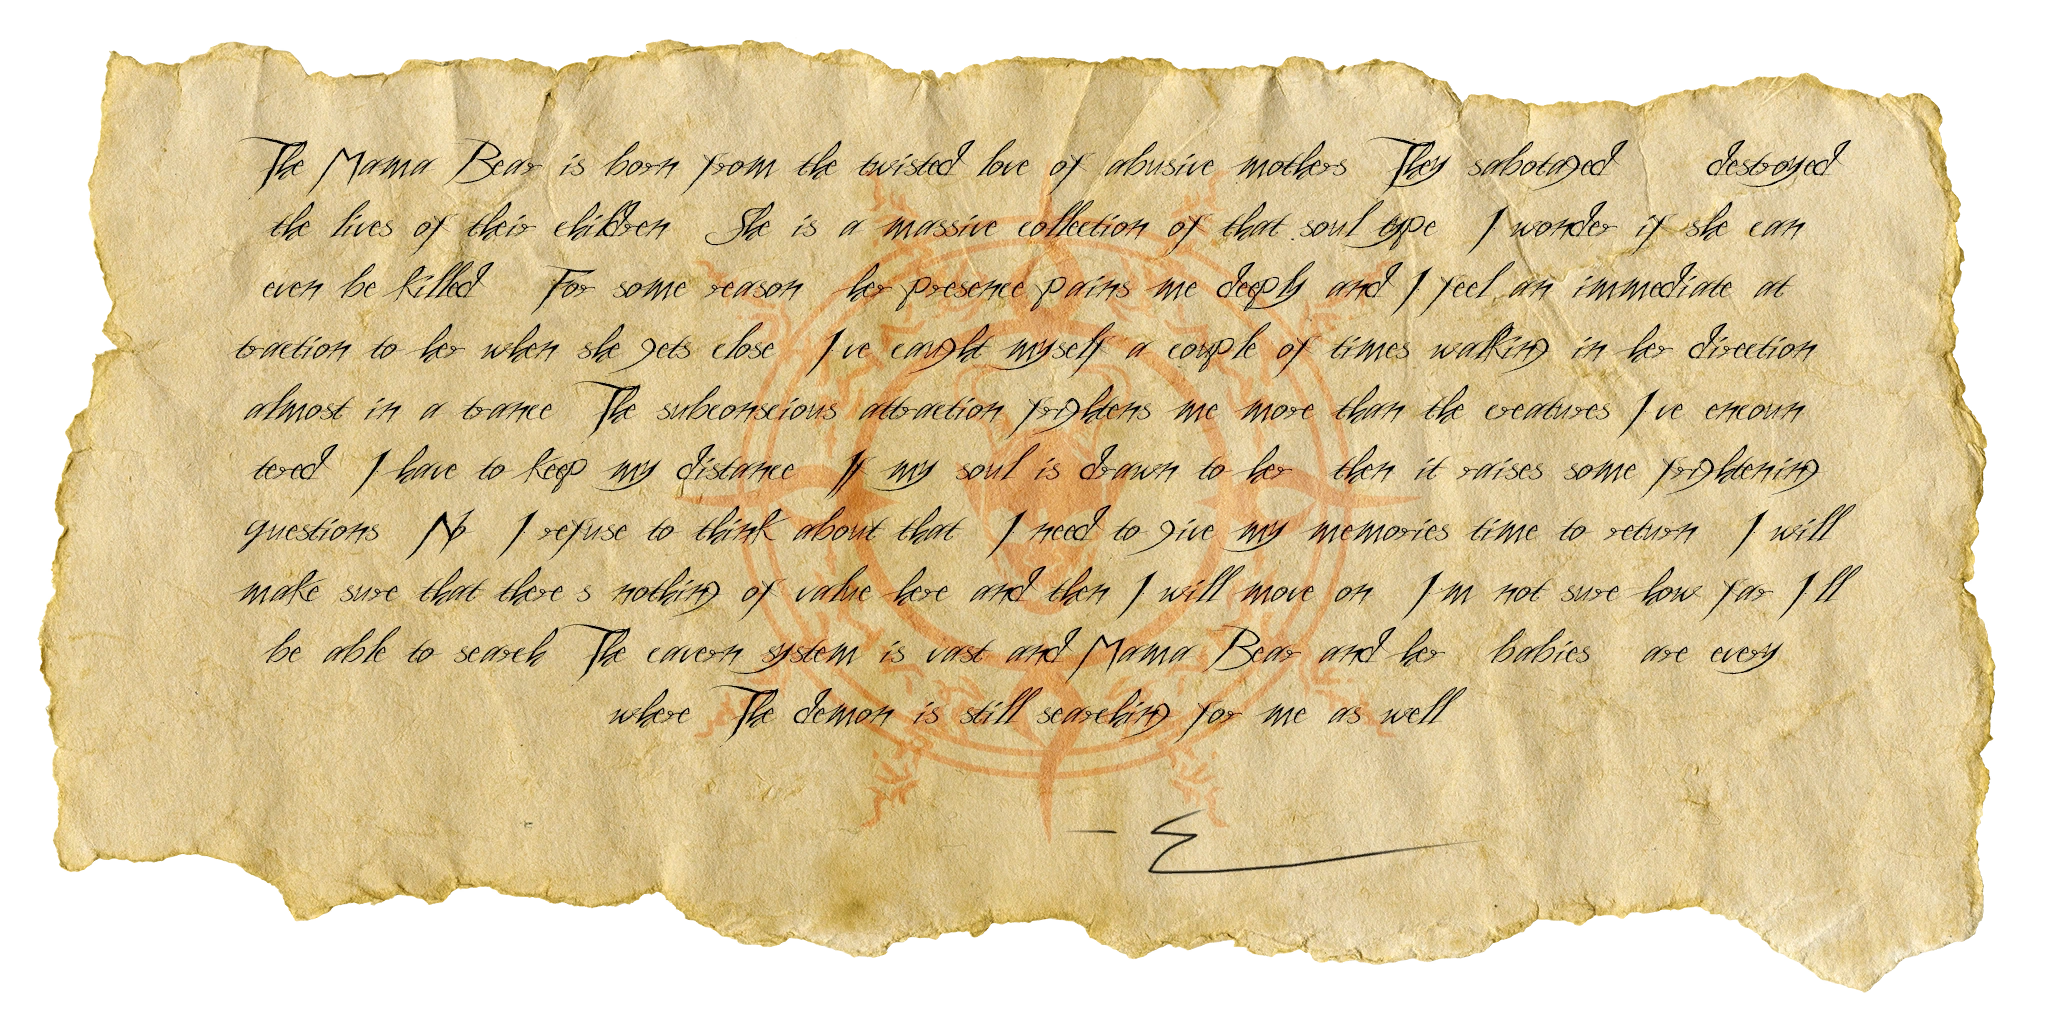 The Mama Bear is born from the twisted love of abusive mothers They sabotaged destroyed
the lives of their children She is a massive collection of that soul type I wonder if she can
even be killed For some reason her presence pains me deeply and I feel an immediate at
traction to her when she gets close I ve caught myself a couple of times walking in her direction
almost in a trance The subconscious attraction frightens me more than the creatures I ve encoun
tered I have to keep my distance If my soul is drawn to her then it raises some frightening
questions No I refuse to think about that I need to give my memories time to return I will
make sure that there s nothing of value here and then I will move on I m not sure how far I ll
be able to search The cavern system is vast and Mama Bear and her babies are every
where The demon is still searching for me as well
- E